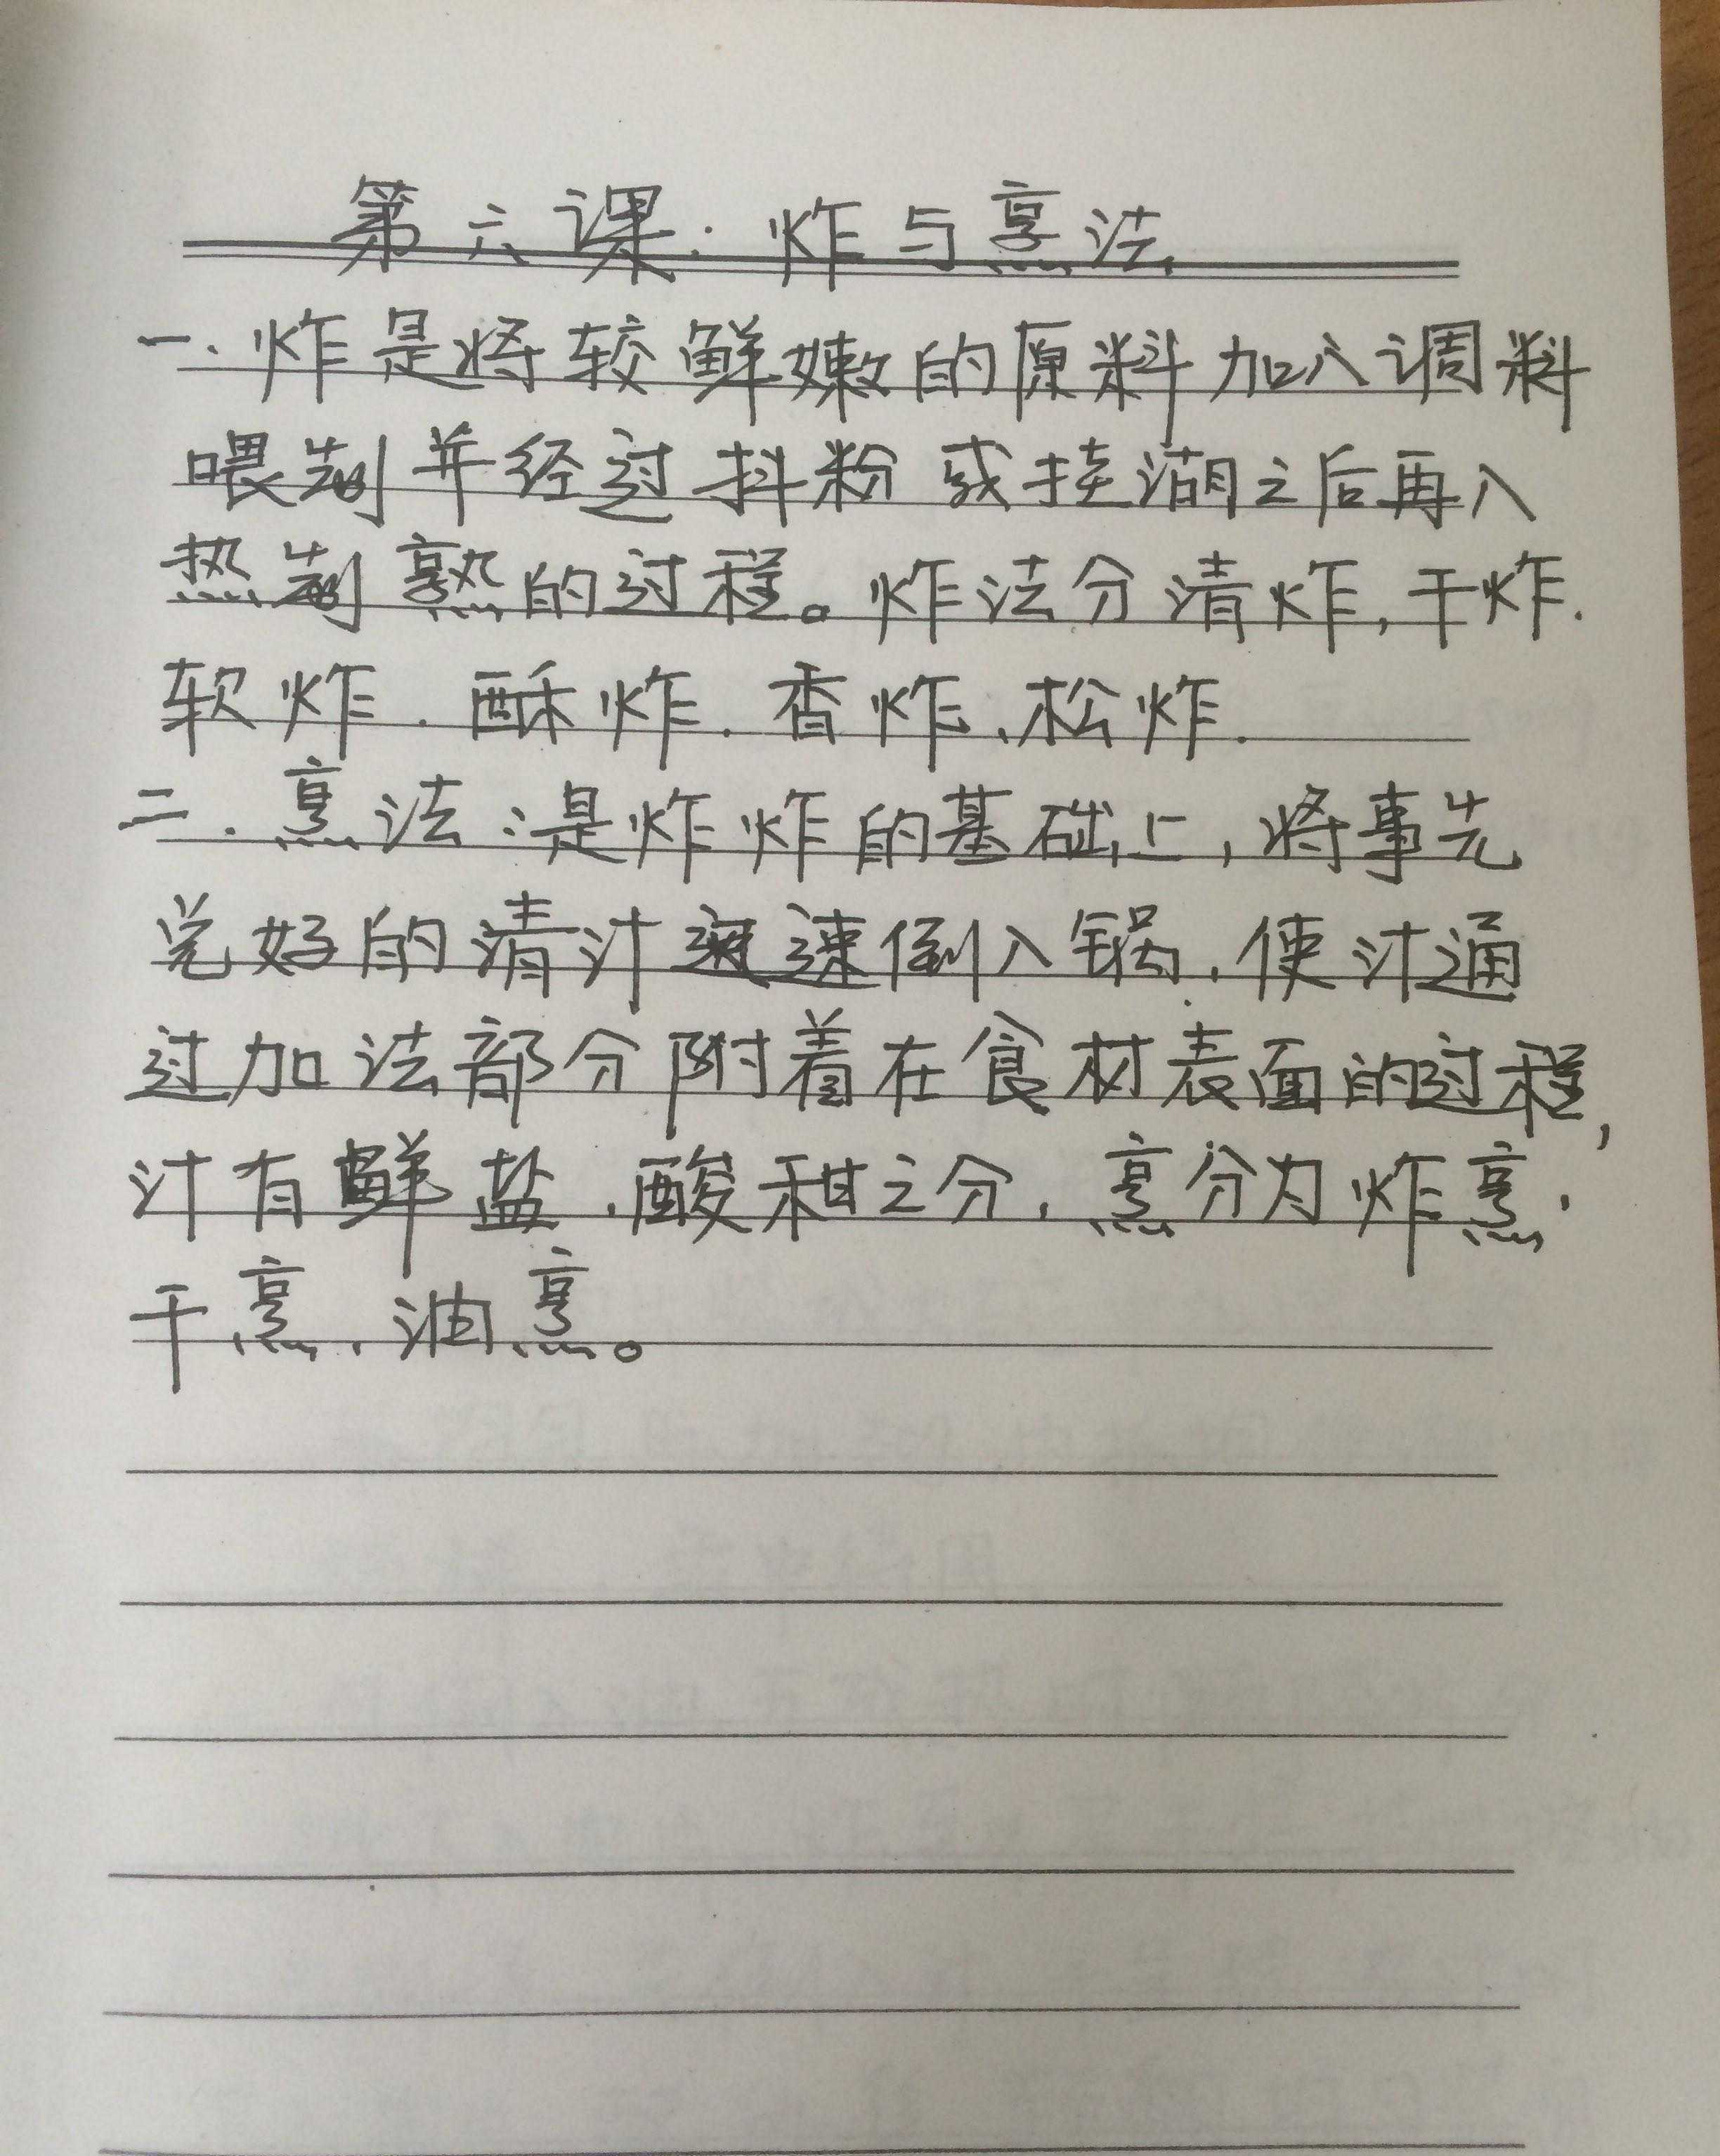 第六课:炸与烹法
一、炸是将较鲜嫩的原料加入调料
喂制并经过抖粉或挂湖之后再入
热制熟的过程。炸法分清炸,干炸.
软炸.酥炸.香炸、松炸.
二.烹法:是炸炸的基础上,将事先
兑好的清汁迅速倒入锅.使汁通
过加法部分附着在食材表面的过程,
汁有鲜盐.酸和甘之分.烹分为炸烹.
干烹.油烹。